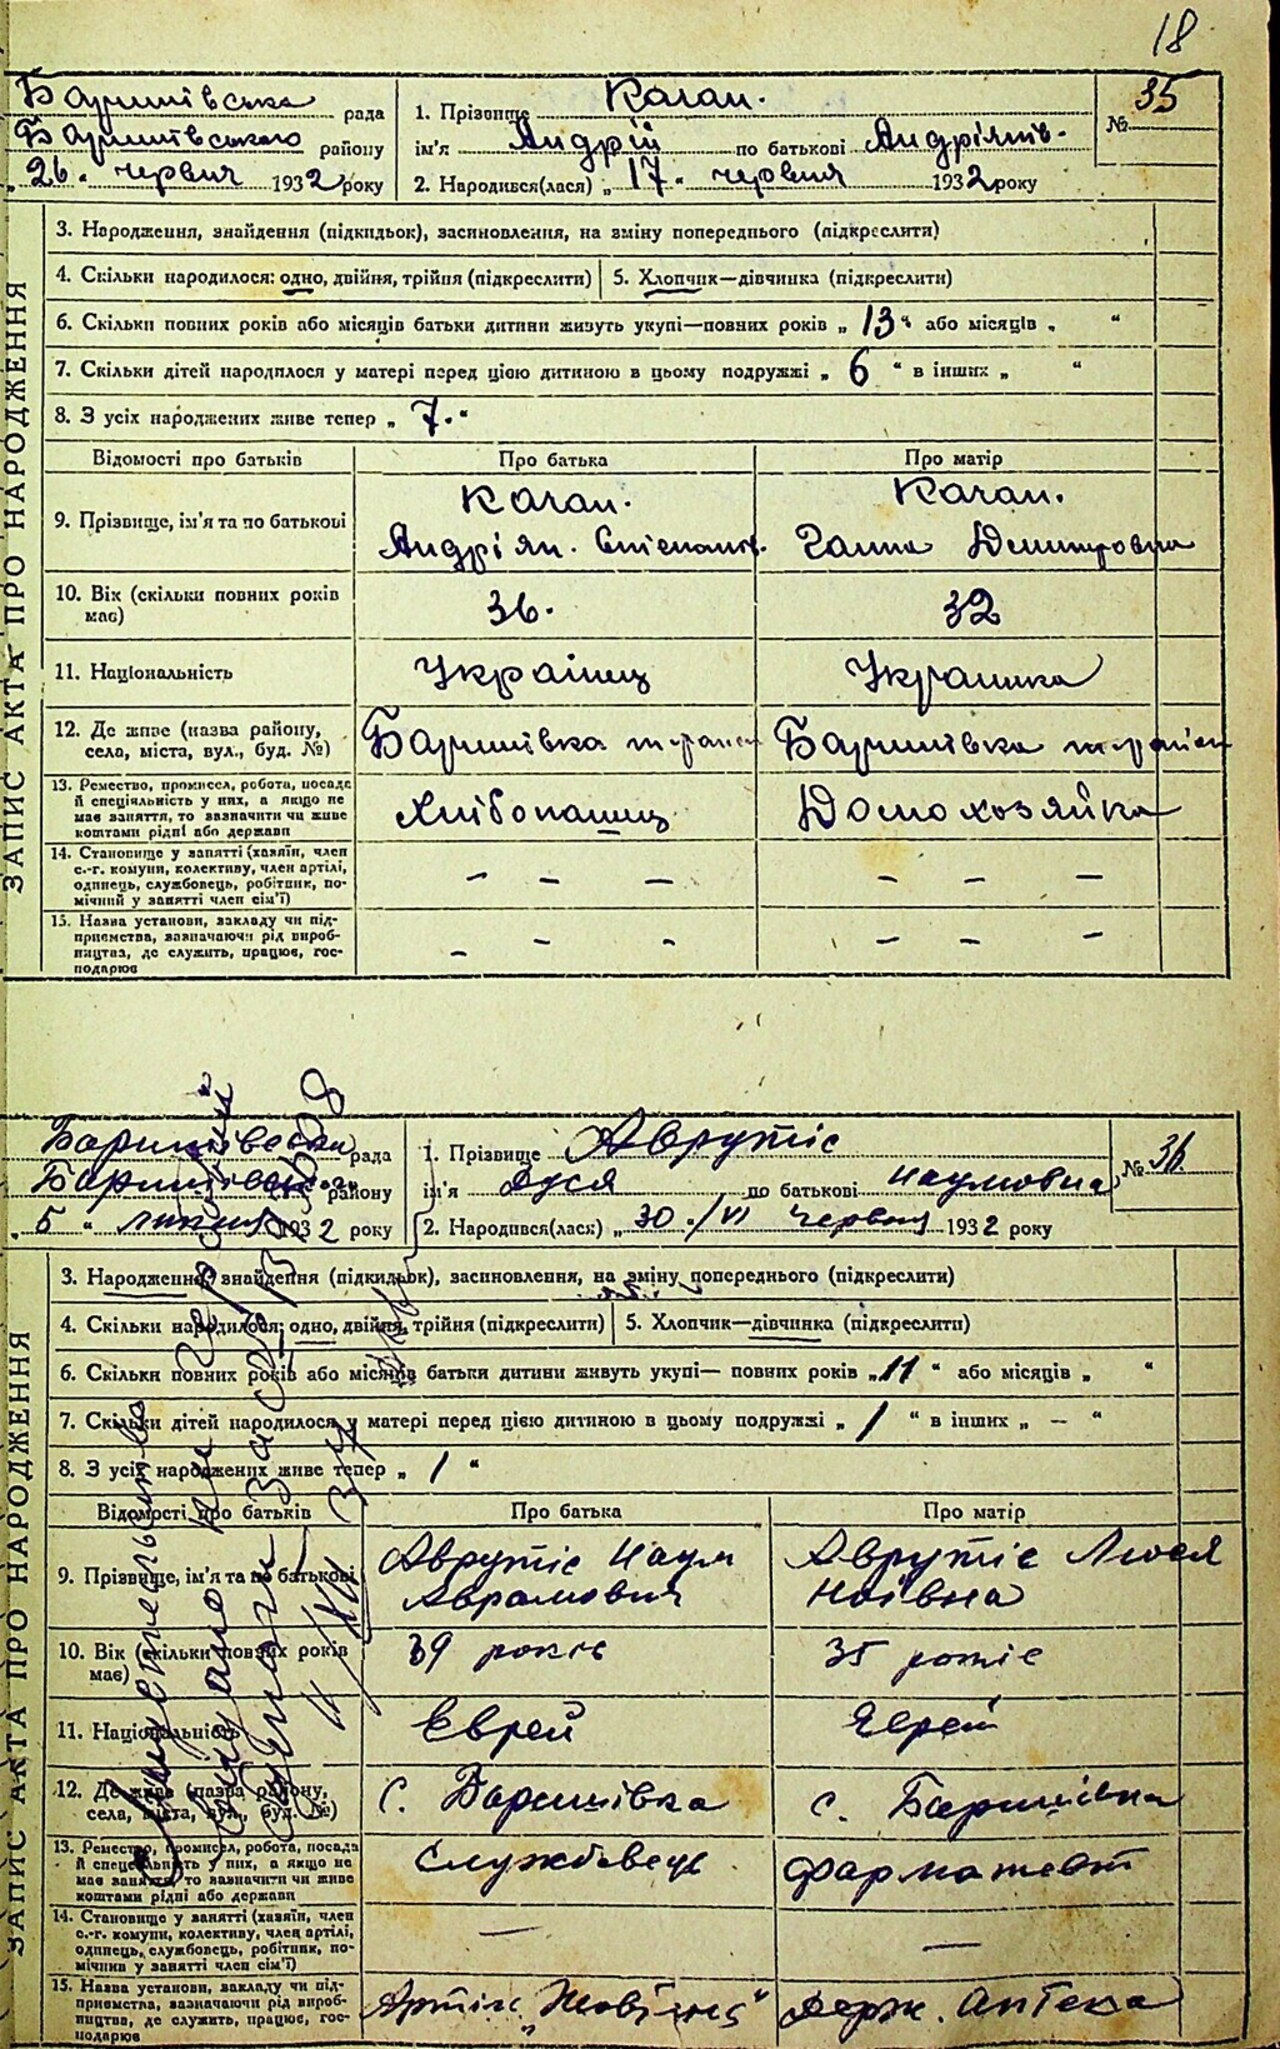 18
Баришівська рада
Баришівського району
„26“ червня 1932 року
1. Прізвище Качан.
ім'я Андрій по батькові Андріянів.
2. Народився(лася) „17“ червня 1932 року
№ 35
ЗАПИС АКТА ПРО НАРОДЖЕННЯ
3. Народження, знайдення (підкидьок), засиновлення, на зміну попереднього (підкреслити)
4. Скільки народилося: одно, двійня, трійня (підкреслити) 5. Хлопчик—дівчинка (підкреслити)
6. Скільки повних років або місяців батьки дитини живуть укупі—повних років „13“ або місяців „ “
7. Скільки дітей народилося у матері перед цією дитиною в цьому подружжі „6“ в інших „ “
8. З усіх народжених живе тепер „7.“
Відомості про батьків Про батька Про матір
9. Прізвище, ім'я та по батькові
Качан. Качан.
Андріян. Степанов. Ганна Дмитровна
10. Вік (скільки повних років має) 36. 32
11. Національність Українец Украинка
12. Де живе (назва району,
села, міста, вул., буд. №) Баришівка Баришівка
13. Ремество, промисел, робота, посада
й спеціяльність у них, а якщо не
має заняття, то зазначити чи живе
коштами рідні або держави
Хлібопашец Домохозяйка
14. Становище у занятті (хазяїн, член
с.-г. комуни, колективу, член артілі,
одинець, службовець, робітник, по-
мічний у занятті член сім'ї)
— — — — — —
15. Назва установи, закладу чи під-
приємства, зазначаючи рід вироб-
ництва, де служить, працює, гос-
подарює
— — — — — —
Баришівська рада
Баришівського району
„5“ липня 1932 року
1. Прізвище Аврутіс
ім'я Дуся по батькові Наумовна
2. Народився(лася) „30“/VI червня 1932 року
№ 36.
ЗАПИС АКТА ПРО НАРОДЖЕННЯ
3. Народження, знайдення (підкидьок), засиновлення, на зміну попереднього (підкреслити)
4. Скільки народилося: одно, двійня, трійня (підкреслити) 5. Хлопчик—дівчинка (підкреслити)
6. Скільки повних років або місяців батьки дитини живуть укупі— повних років „11“ або місяців „ “
7. Скільки дітей народилося у матері перед цією дитиною в цьому подружжі „1“ в інших „—“
8. З усіх народжених живе тепер „1“
Відомості про батьків Про батька Про матір
9. Прізвище, ім'я та по батькові
Аврутіс Наум Аврутіс Люся
Аврамович Ноівна
10. Вік (скільки повних років має) 39 років 35 років
11. Національність Єврей Єврей
12. Де живе (назва району,
села, міста, вул., буд. №) С. Баришівка с. Баришівка
13. Ремество, промисел, робота, посада
й спеціяльність у них, а якщо не
має заняття, то зазначити чи живе
коштами рідні або держави
Службовець Фармацевт
14. Становище у занятті (хазяїн, член
с.-г. комуни, колективу, член артілі,
одинець, службовець, робітник, по-
мічний у занятті член сім'ї)
— —
15. Назва установи, закладу чи під-
приємства, зазначаючи рід вироб-
ництва, де служить, працює, гос-
подарює
Артіль „Жовтень“ Держ. Аптека